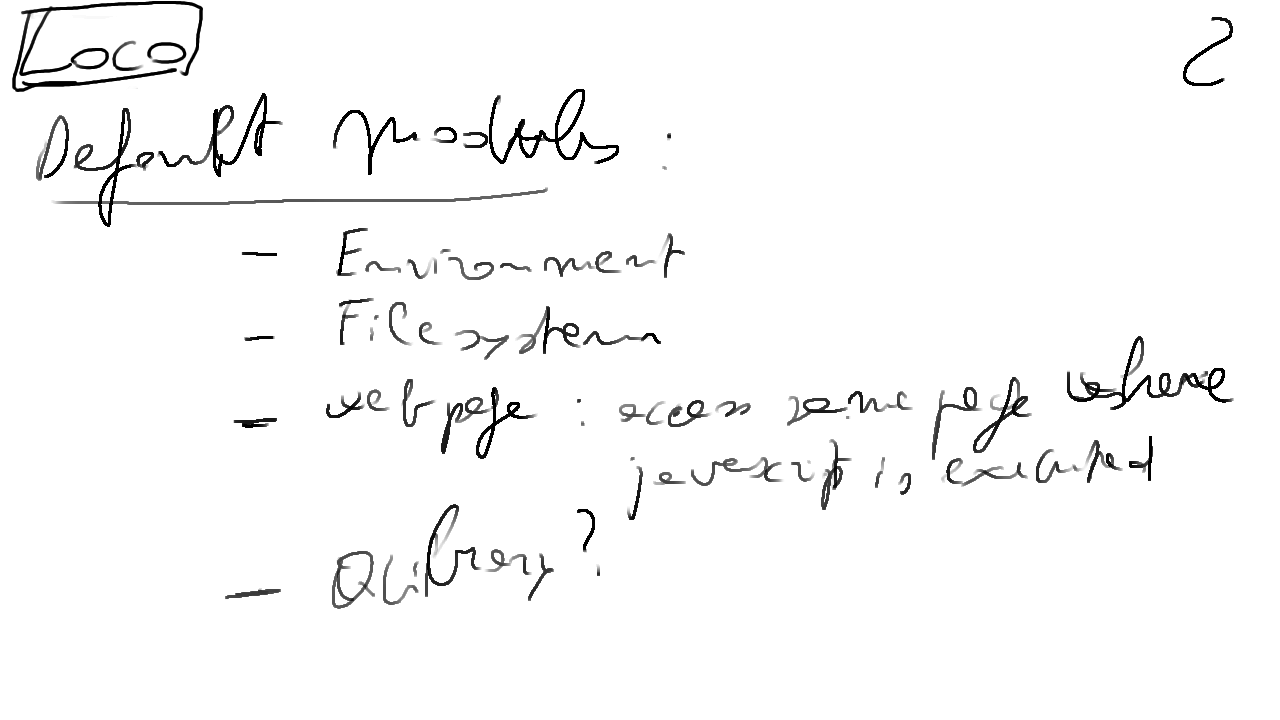 Loco
2
Default modules :
- Environment
- Filesystem
- webpage : access same page where
javascript is executed
- QLibrary ?